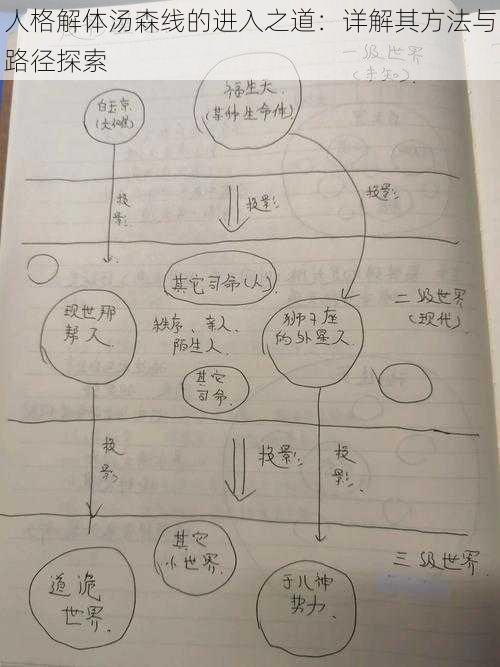 人格解体汤森线的进入之道：详解其方法与
路径探索
一级世界
(未知).
白玉京.
福生天.
(某种生命体)
投影
投影.
投影.
其它司命(人).
二级世界
(现代).
现世那
帮人.
秩序、亲人.
陌生人.
狮子座
的外星人
其它
司命.
投影.
投影.
投影.
其它
小世界.
三级世界.
道诡
世界.
于儿神
势力.